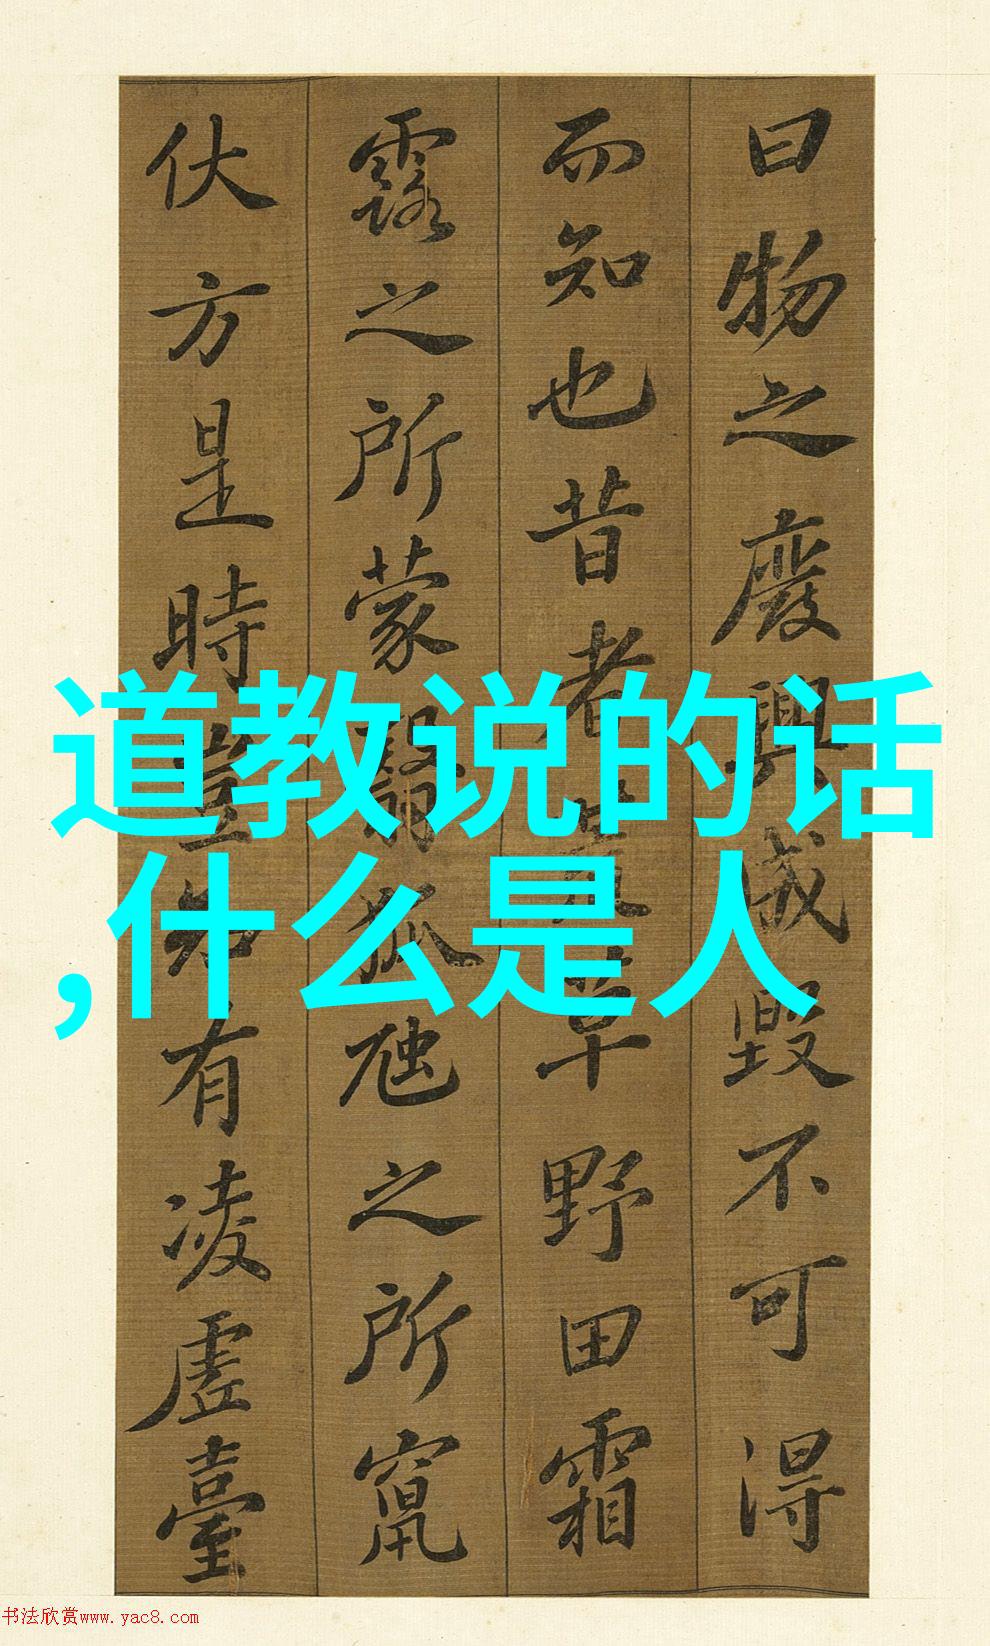 曰物之廢興成毀不可得
而知也昔者荒草野田霜
露之所蒙翳狐虺之所竄
伏方是時豈知有凌虛臺
道教说的话
,什么是人
书法欣赏www.yac8.com